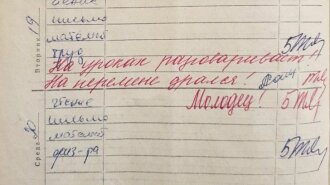 чтение
письмо
математ
труд
Вторник 19
5
На уроках разговаривает
На перемене дрался!
Молодец! 5
Среда 20
чтение
письмо
математ
физ-ра
5